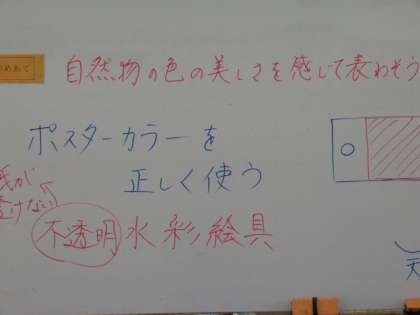 めあて
自然物の色の美しさを感じて表わそう
ポスターカラーを
正しく使う
紙が
透けない
不透明水彩絵具
天